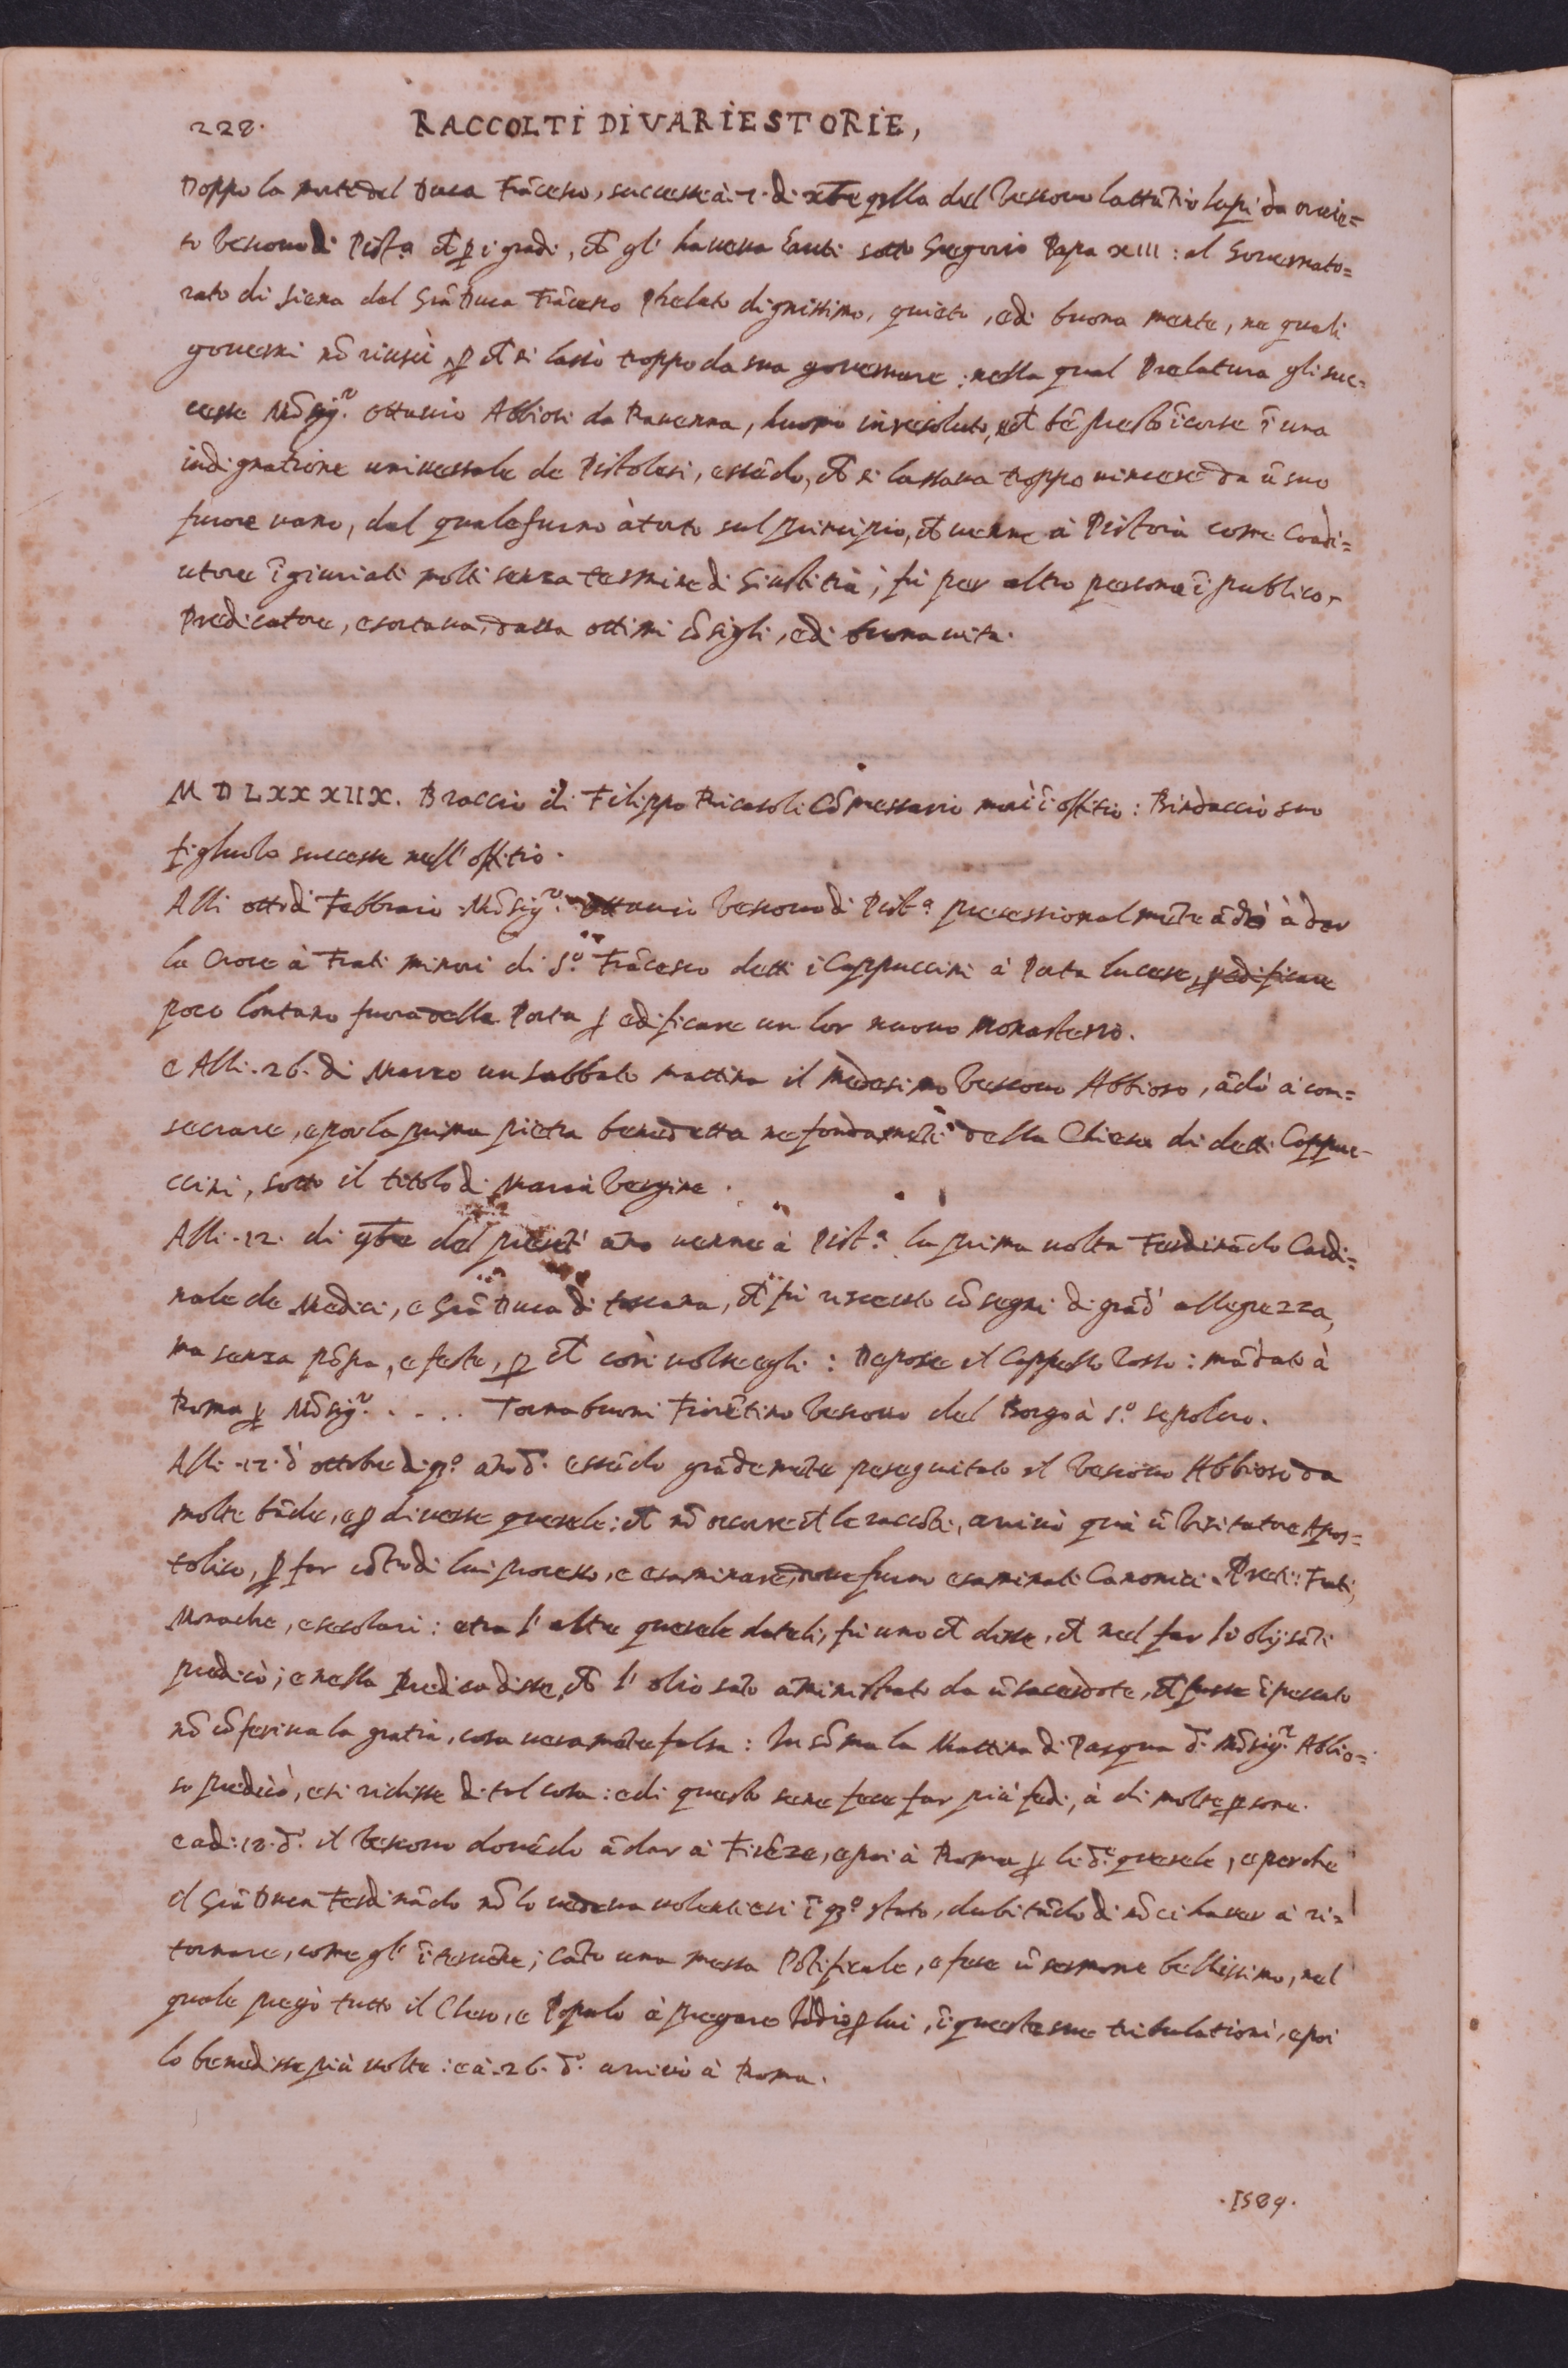 228.
RACCOLTI DI VARIE STORIE,
Doppo la morte del Duca Frãcesco, successe à .7. di xbre q̃lla del Vescovo Lattãtio Lapi da orvie=
to Vescovo di Pist.ª ch̃ p̱ i gradi, ch̃ gl' haveva hauti sotto Gregorio Papa XIII: al Governato=
rato di Siena dal Grã Duca Frãcesco Prelato dignissimo, quieto, e di buona mente, ne quali
governi nõ riuscì p̱ ch̃ si lassò troppo da sua governare; nella qual Prelatura gli suc=
cesse Mõsig.r Ottavio Abbiosi da Ravenna, huomo inresoluto, ch̃ bẽ presto ĩcorse ĩ una
indignatione universale de Pistolesi, essẽdo, ch̃ si lassava troppo vincere da ũ suo
furore vano, dal quale furno à torto sul principio, ch̃ venne à Pistoia come Coadi=
utore ĩgiuriati molti senza termine di Giustitia; fù per altro persona ĩ publico,
Predicatore, esortava, dava ottimi cõsigli, e di buona vita.
M D L X X X I I X. Braccio di Filippo Ricasoli Cõmessario morì ĩ offitio: Bindaccio suo
figliuolo successe nell' offitio.
Alli otto di Febbraio Mõsig.r Ottavio Vescovo di Pist.ª processionalmẽte ãdò à dar
la Croce à Frati minori di S.o Frãcesco detti i Cappuccini à Porta lucese, p̱ edificare
poco lontano fuora della Porta p̱ edificare un lor nuovo Monasterio.
e Alli .26. di Marzo un Sabbato mattina il medesimo Vescovo Abbioso, ãdò à con=
secrare, e por la prima pietra benedetta ne fondamẽti della Chiesa di detti Cappuc=
ccini, sotto il titolo di Maria Vergine.
Alli .12. di 9bre del presẽt' ãno venne à Pist.ª la prima volta Ferdinãdo Cardi=
nale de Medici, e Grã Duca di toscana, ch̃ fù ricevuto cõ segni di grãd' allegrezza,
ma senza põpa, e feste, p̱ ch̃ così volse egli: Depose il Cappello Rosso: mãdato à
Roma p̱ Mõsig.r . . . . Tornabuoni Fiorẽtino Vescovo del Borgo à S.o sepolcro.
Alli .12. d' ottobre di q̃o ãno d.o essẽdo grãdemẽte perseguitato il Vescovo Abbiosi da
molte bãde, e p̱ diverse querele: ch̃ nõ occorre ch̃ le raccõti, arrivò quà ũ Visitatore Apos=
tolico, p̱ far cõtro di lui processo, e esaminare, dove furno esaminati Canonici, Preti: Frati,
Monache, e secolari: e tra l' altre querele dateli, fù uno ch̃ disse, ch̃ nel far li olij sãti
predicò; e nella Predica disse, ch̃ l' olio sãto amministrato da ũ sacerdote, ch̃ fusse ĩ peccato
nõ cõferiva la gratia, cosa veramẽte falsa: In sõma la Mattina di Pasqua d.o Mõsig.r Abbio=
so predicò, e si ridisse di tal cosa: e di questo se ne fece far più fedi, à di molte p̱sone.
e adi .18. d.o il Vescovo dovẽdo ãdar à Firẽze, e poi à Roma p̱ le d.e querele, e perche
il Grã Duca Ferdinãdo nõ lo vedeva volentieri ĩ q̃o stato, dubitãdo di nõ ci haver à ri=
tornare, come gl' ĩtervẽne; cãtò una messa Põtificale, e fece ũ sermone bellissimo, nel
quale pregò tutto il Clero, e Popolo à pregare Iddio p̱ lui, ĩ queste sue tribulationi, e poi
lo benedisse più volte: e à .26. d.o arrivò à Roma.
.1589.